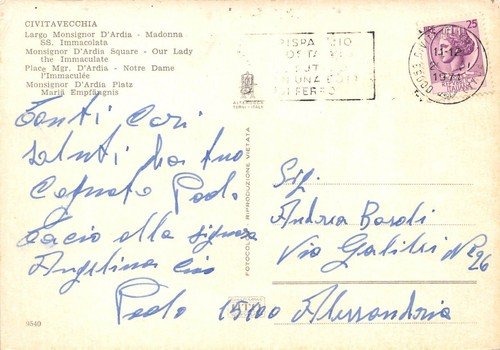 CIVITAVECCHIA
Largo Monsignor D'Ardia - Madonna
SS. Immacolata
Monsignor D'Ardia Square - Our Lady
the Immaculate
Place Mgr. D'Ardia - Notre Dame
l'Immaculée
Monsignor D'Ardia Platz
Mariä Empfängnis
Tanti Cari
Saluti dal tuo
Cognato Paolo
Bacio alla signora
Angelina Ciao
Paolo
9540
RIPRODUZIONE VIETATA
25
11-12
1971
Sig.
Andrea Baroli
Via Galilei
N° 26
15100 Alessandria